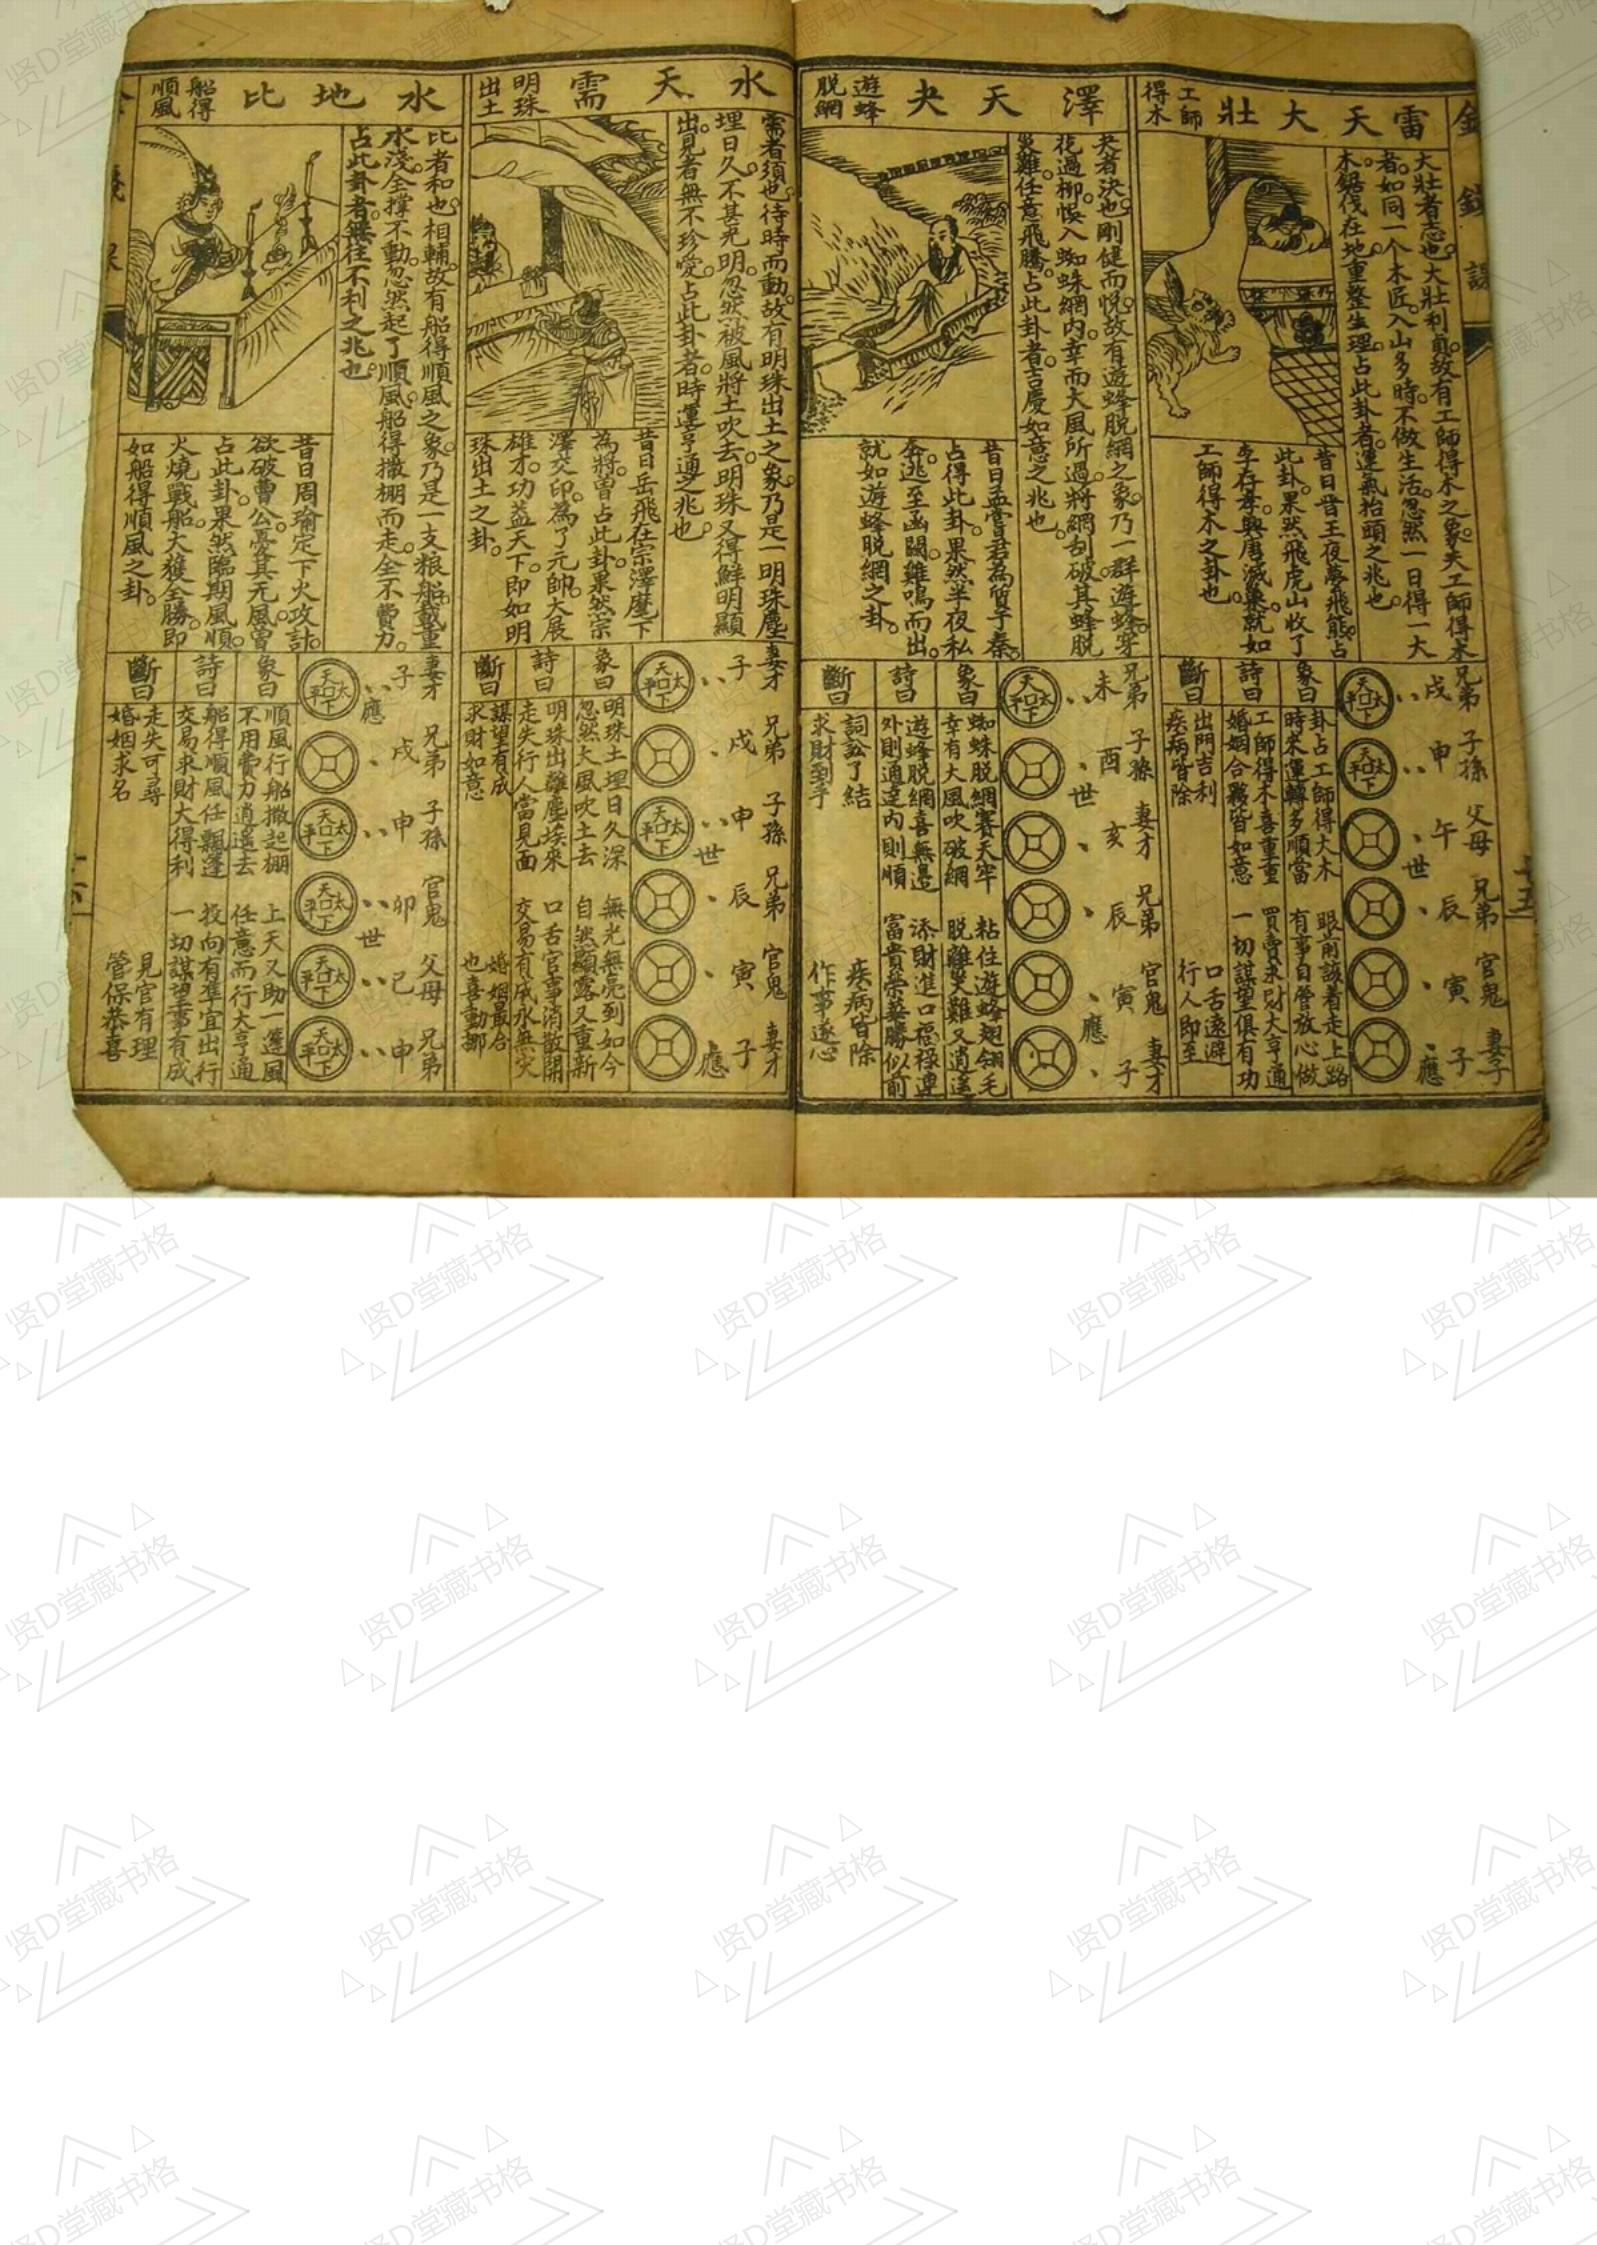 雷天大壯
工師
得木
大壯者志也大壯利貞故有工師得木之象夫工師得木
者如同一个木匠入山多時不做生活忽然一日得一大
木鋸伐在地重整生理占此卦者運氣抬頭之兆也
昔日晉王夜夢飛熊占
此卦果然飛虎山收了
李存孝興唐滅巢就如
工師得木之卦也
兄弟 子孫 父母 兄弟 官鬼 妻才
戌 申 午 辰 寅 子
世 應
象曰
卦占工師得大木 眼前該着走上路
時來運轉多順當 有事自管放心做
詩曰
工師得木喜重重 買賣求財大亨通
婚姻合夥皆如意 一切謀望俱有功
斷曰
出門吉利 口舌遠避
疾病皆除 行人即至
澤天夬
遊蜂
脫網
夬者決也剛健而悅故有遊蜂脫網之象乃一群遊蜂穿
花過柳悞入蜘蛛網内幸而大風所過將網刮破其蜂脫
災難任意飛騰占此卦者吉慶如意之兆也
昔日孟嘗君為質于秦
占得此卦果然半夜私
奔逃至函關雞鳴而出
就如遊蜂脫網之卦
兄弟 子孫 妻才 兄弟 官鬼 妻才
未 酉 亥 辰 寅 子
世 應
象曰
蜘蛛脫網賽天牢 粘住遊蜂翅翎毛
幸有大風吹破網 脫離災難又消遙
詩曰
遊蜂脫網喜無邊 添財進口福祿連
外則通達内則順 富貴榮華勝似前
斷曰
詞訟了結 疾病皆除
求財到手 作事遂心
水天需
明珠
出土
需者須也待時而動故有明珠出土之象乃是一明珠塵
埋日久不甚光明忽然被風將土吹去明珠又得鮮明顯
出見者無不珍愛占此卦者時運亨通之兆也
昔日岳飛在宗澤麾下
為將曾占此卦果然宗
澤交印為了元帥大展
雄才功蓋天下即如明
珠出土之卦
妻才 兄弟 子孫 兄弟 官鬼 妻才
子 戌 申 辰 寅 子
世 應
象曰
明珠土埋日久深 無光無亮到如今
忽然大風吹土去 自然顯露又重新
詩曰
明珠出離塵埃來 口舌官事消散開
走失行人當見面 交易有成永無災
斷曰
謀望有成 婚姻最合
求財如意 也喜動挪
水地比
船得
順風
比者和也相輔故有船得順風之象乃是一支粮船載重
水淺全撑不動忽然起了順風船得撒棚而走全不費力
占此卦者無往不利之兆也
昔日周瑜定下火攻計
欲破曹公憂其无風曾
占此卦果然臨期風順
火燒戰船大獲全勝即
如船得順風之卦
妻才 兄弟 子孫 官鬼 父母 兄弟
子 戌 申 卯 巳 申
應 世
象曰
順風行船撒起棚 上天又助一篷風
不用費力逍遙去 任意而行大亨通
詩曰
船得順風任飄蓬 投向有準宜出行
交易求財大得利 一切謀望事有成
斷曰
走失可尋 見官有理
婚姻求名 管保恭喜